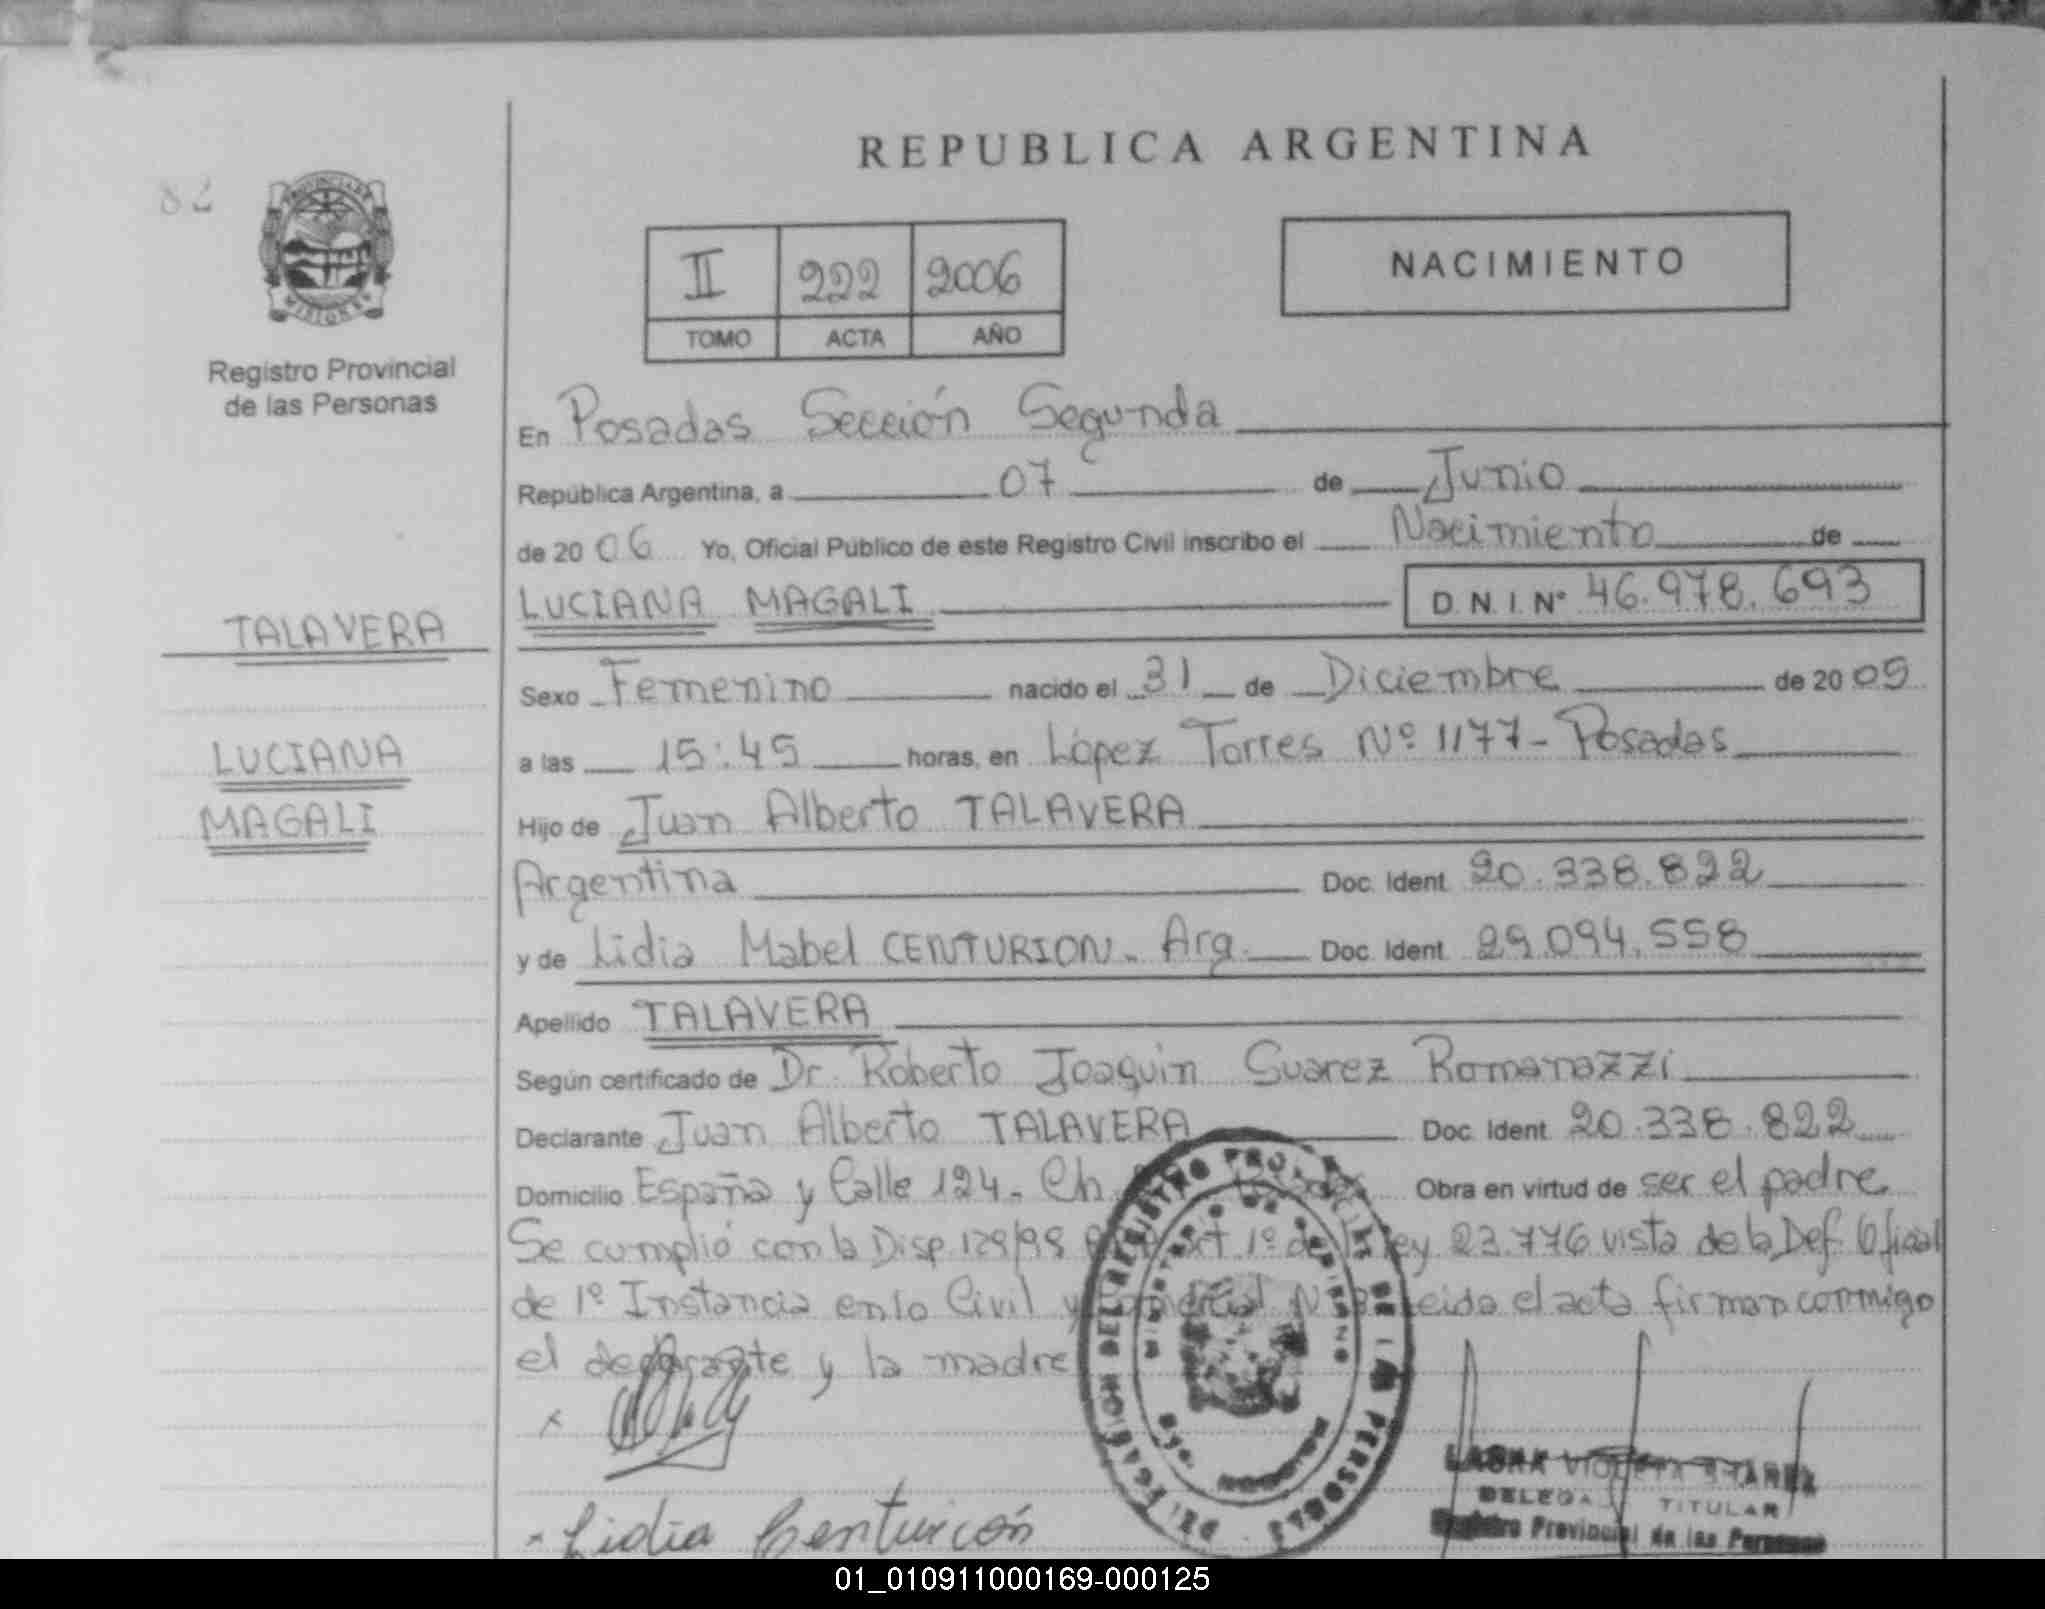 REPUBLICA ARGENTINA
82
PROVINCIA DE
MISIONES
Registro Provincial
de las Personas
II 222 2006
TOMO ACTA AÑO
NACIMIENTO
En Posadas Sección Segunda
República Argentina, a 07 de Junio
de 2006 Yo, Oficial Público de este Registro Civil inscribo el Nacimiento de
LUCIANA MAGALI D.N.I. Nº 46.978.693
TALAVERA
LUCIANA
MAGALI
Sexo Femenino nacido el 31 de Diciembre de 2005
a las 15:45 horas, en López Torres Nº 1177 - Posadas
Hijo de Juan Alberto TALAVERA
Argentina Doc. Ident. 20.338.822
y de Lidia Mabel CENTURION. Arg. Doc. Ident. 29.094.558
Apellido TALAVERA
Según certificado de Dr. Roberto Joaquin Suarez Romanazzi
Declarante Juan Alberto TALAVERA Doc. Ident. 20.338.822
Domicilio España y Calle 124. Ch Obra en virtud de ser el padre
Se cumplió con la Disp. 129/98 Art 1º de la Ley 23.776 vista de la Def. Oficial
de 1º Instancia en lo Civil y Comercial Nº leida el acta firman conmigo
el declarante y la madre
DELEGACION DEL REGISTRO PROVINCIAL DE LAS PERSONAS
MINISTERIO DE GOBIERNO
x
x Lidia Centurión
VIOLETA
DELEGA TITULAR
Registro Provincial de las Personas
01_010911000169-000125